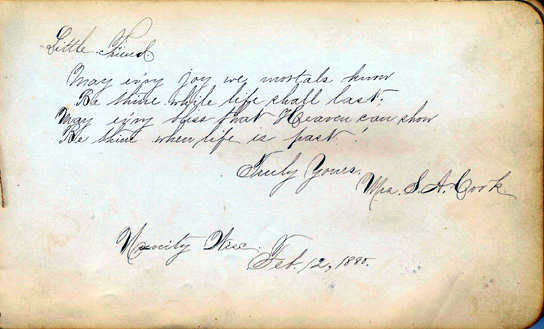 Little Friend
May ev'ry joy we mortals know
Be thine while life shall last;
May ev'ry bliss that Heaven can show
Be thine when life is past!
Truly Yours.
Mrs. S. A. Cook.
City Wisc.
Feb. 12, 1880.